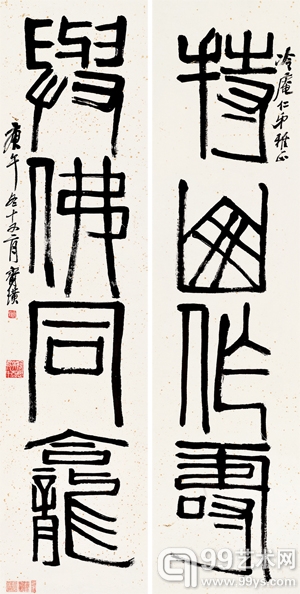 冷庵仁弟雅正
持山作壽
與佛同龕
庚午冬十 月 齊璜
99艺术网
www.99ys.com